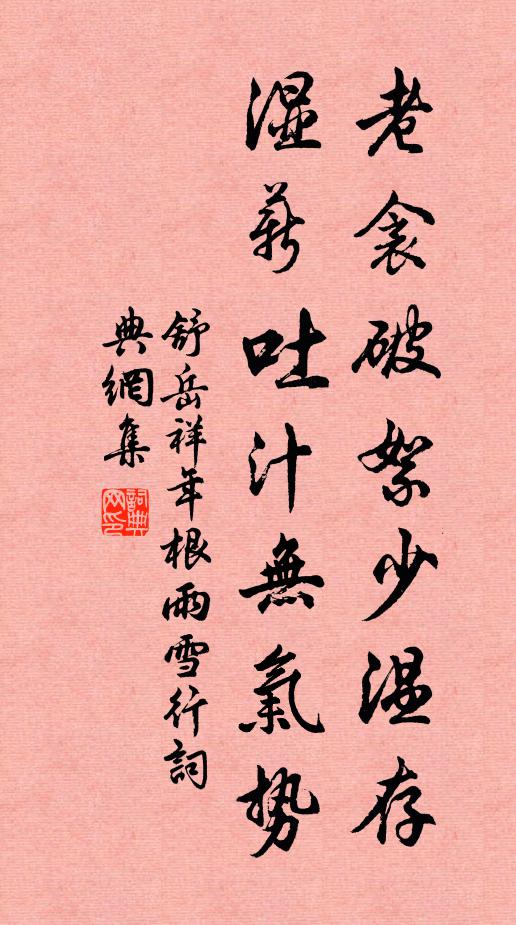 老衾破絮少温存
湿薪吐汁無氣勢
舒岳祥年根雨雪行詞
典網集
詞典網印